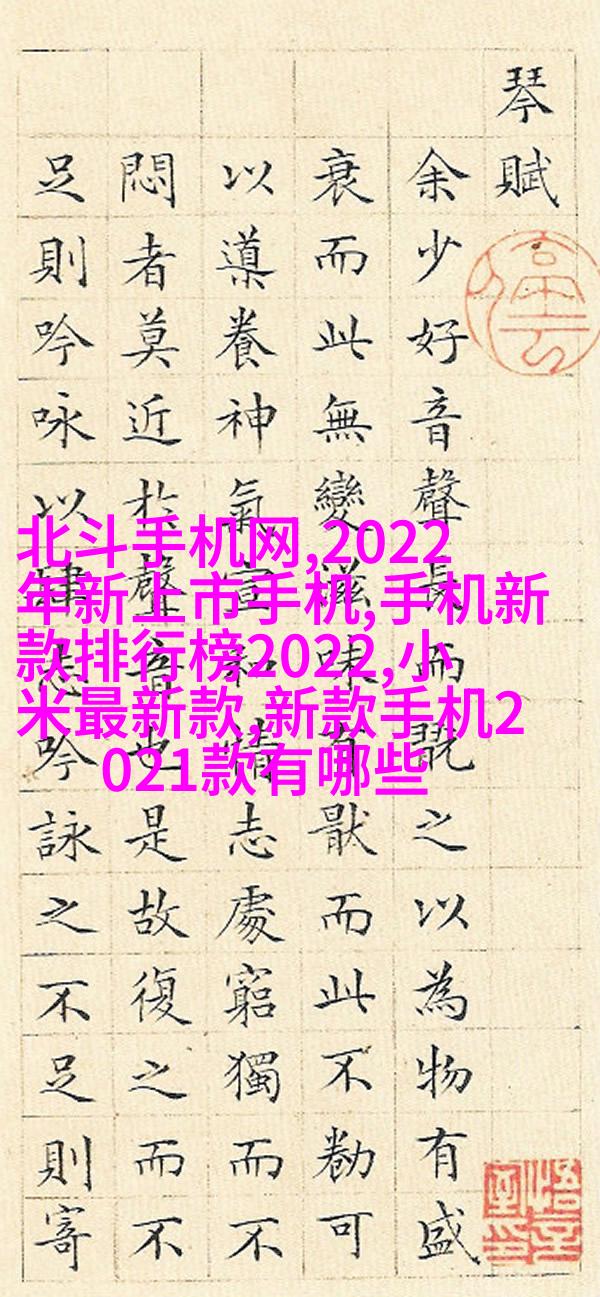 琴賦
余少好音聲長而翫之以為物有盛
衰而此無變滋味有猒而此不勌可
以導養神氣宣和情志處窮獨而不
悶者莫近於聲音也是故復之而不
足則吟咏以肆志吟詠之不足則寄
北斗手机网,2022
年新上市手机,手机新
款排行榜2022,小
米最新款,新款手机2
021款有哪些